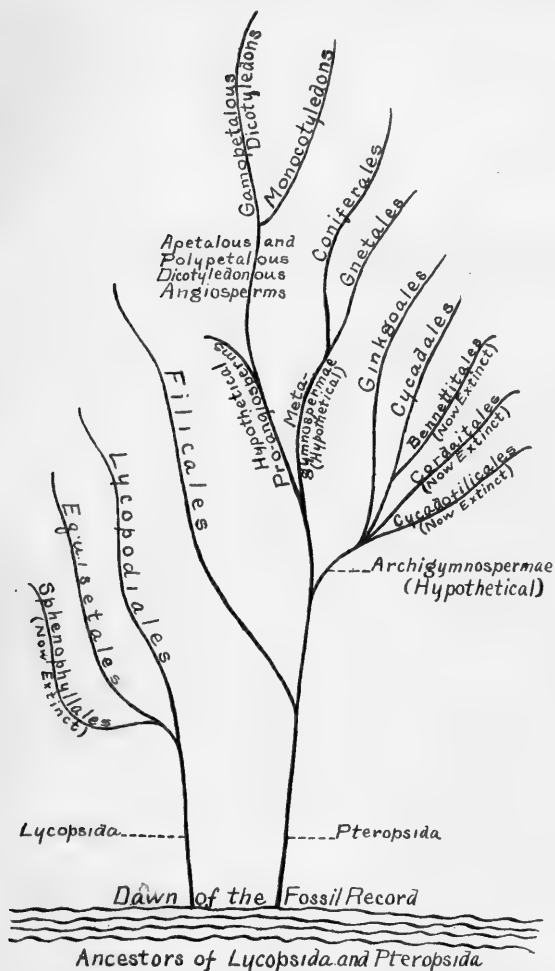 Gamopetalous
Dicotyledons
Monocotyledons
Apetalous and
Polypetalous
Dicotyledonous
Angiosperms
Coniferales
Gnetales
Ginkgoales
Cycadales
Bennettitales
(Now Extinct)
Cordaitales
(Now Extinct)
Cycadofilicales
(Now Extinct)
Hypothetical
Pro-angiosperms
Meta-
gymnospermae
(Hypothetical)
Archigymnospermae
(Hypothetical)
Filicales
Lycopodiales
Equisetales
Sphenophyllales
(Now Extinct)
Lycopsida
Pteropsida
Dawn of the Fossil Record
Ancestors of Lycopsida and Pteropsida